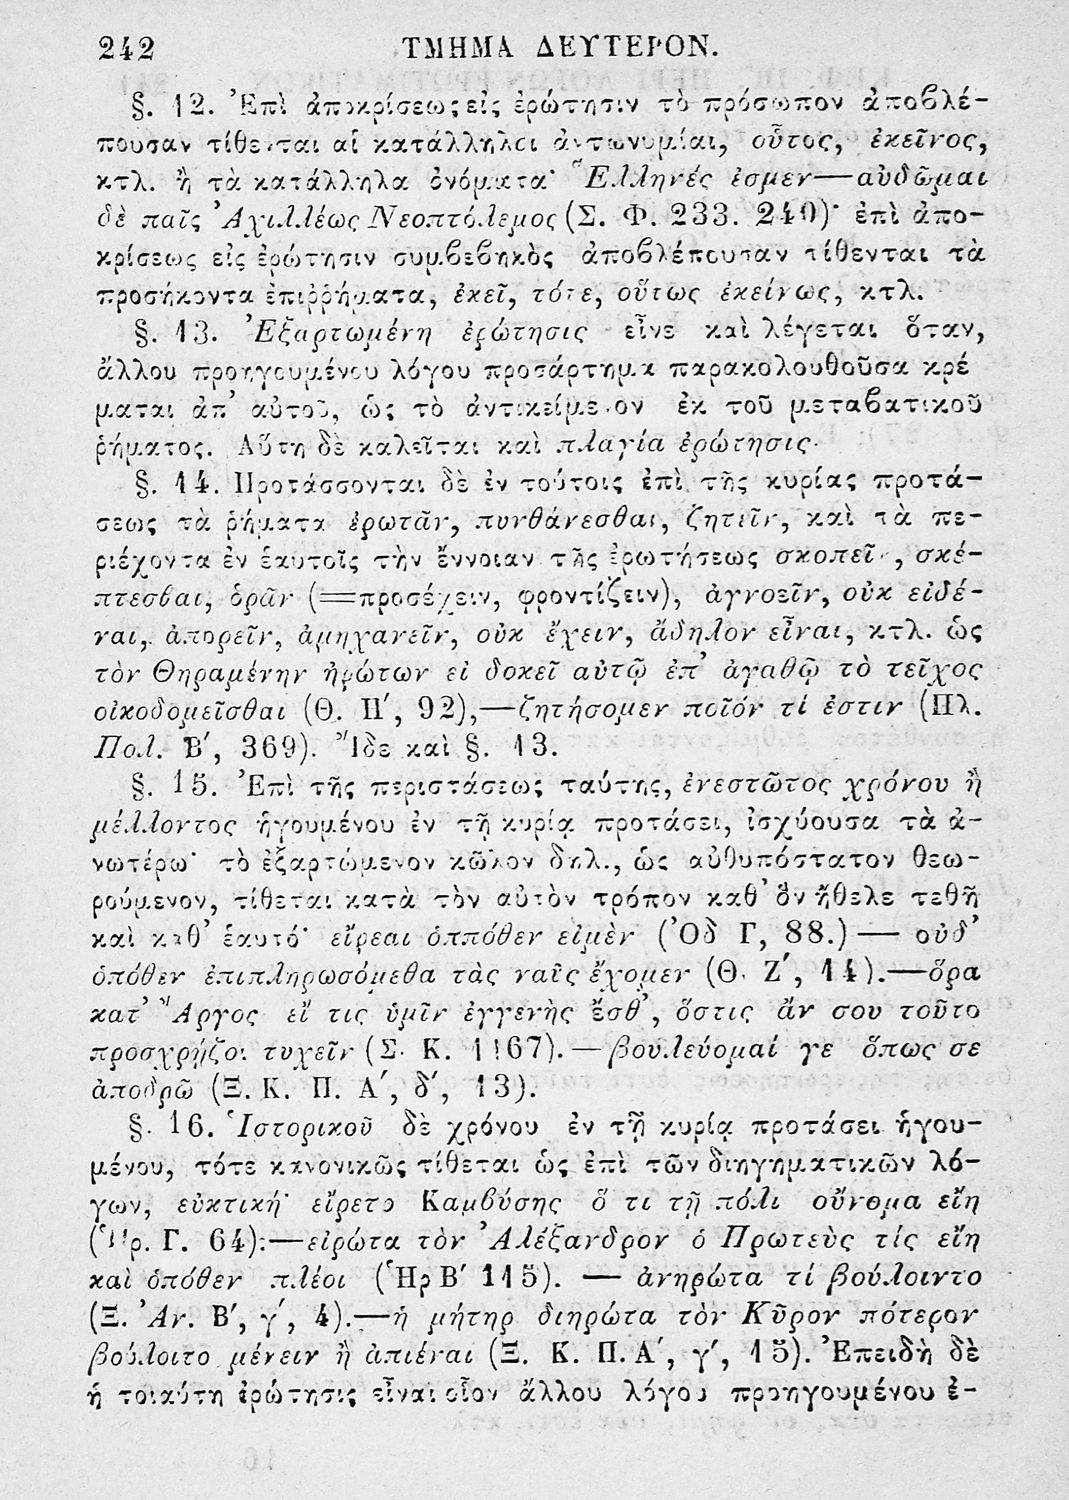 242 ΤΜΗΜΑ ΔΕΥΤΕΡΟΝ.
§. 12. Ἐπὶ ἀποκρίσεως εἰς ἐρώτησιν τὸ πρόσωπον ἀποβλέ-
πουσαν τίθενται αἱ κατάλληλοι ἀντωνυμίαι, οὗτος, ἐκεῖνος,
κτλ. ἢ τὰ κατάλληλα ὀνόματα· Ἕλληνές ἐσμεν—αὐδῶμαι
δὲ παῖς Ἀχιλλέως Νεοπτόλεμος (Σ. Φ. 233. 240)· ἐπὶ ἀπο-
κρίσεως εἰς ἐρώτησιν συμβεβηκὸς ἀποβλέπουσαν τίθενται τὰ
προσήκοντα ἐπιῤῥήματα, ἐκεῖ, τότε, οὕτως ἐκείνως, κτλ.
§. 13. Ἐξαρτωμένη ἐρώτησις εἶνε καὶ λέγεται ὅταν,
ἄλλου προηγουμένου λόγου προσάρτημα παρακολουθοῦσα κρέ
μαται ἀπ' αὐτοῦ, ὡς τὸ ἀντικείμενον ἐκ τοῦ μεταβατικοῦ
ῥήματος. Αὕτη δὲ καλεῖται καὶ πλαγία ἐρώτησις.
§. 14. Προτάσσονται δὲ ἐν τούτοις ἐπὶ τῆς κυρίας προτά-
σεως τὰ ῥήματα ἐρωτᾶν, πυνθάνεσθαι, ζητεῖν, καὶ τὰ πε-
ριέχοντα ἐν ἑαυτοῖς τὴν ἔννοιαν τῆς ἐρωτήσεως σκοπεῖν, σκέ-
πτεσθαι, ὁρᾶν (=προσέχειν, φροντίζειν), ἀγνοεῖν, οὐκ εἰδέ-
ναι, ἀπορεῖν, ἀμηχανεῖν, οὐκ ἔχειν, ἄδηλον εἶναι, κτλ. ὡς
τὸν Θηραμένην ἠρώτων εἰ δοκεῖ αὐτῷ ἐπ' ἀγαθῷ τὸ τεῖχος
οἰκοδομεῖσθαι (Θ. Η', 92),—ζητήσομεν ποῖόν τί ἐστιν (Πλ.
Πολ. Β', 369). Ἴδε καὶ §. 13.
§. 15. Ἐπὶ τῆς περιστάσεως ταύτης, ἐνεστῶτος χρόνου ἢ
μέλλοντος ἡγουμένου ἐν τῇ κυρίᾳ προτάσει, ἰσχύουσα τὰ ἀ-
νωτέρω· τὸ ἐξαρτώμενον κῶλον δηλ., ὡς αὐθυπόστατον θεω-
ρούμενον, τίθεται κατὰ τὸν αὐτὸν τρόπον καθ' ὃν ἤθελε τεθῆ
καὶ καθ' ἑαυτό· εἴρεαι ὁππόθεν εἰμὲν (Ὀδ Γ, 88.)— οὐδ'
ὁπόθεν ἐπιπληρωσόμεθα τὰς ναῦς ἔχομεν (Θ. Ζ', 14).—ὅρα
κατ' Ἄργος εἴ τις ὑμῖν ἐγγενὴς ἔσθ', ὅστις ἄν σου τοῦτο
προσχρῄζοι τυχεῖν (Σ. Κ. 1167).—βουλεύομαί γε ὅπως σε
ἀποδρῶ (Ξ. Κ. Π. Α', δ', 13).
§. 16. Ἱστορικοῦ δὲ χρόνου ἐν τῇ κυρίᾳ προτάσει ἡγου-
μένου, τότε κανονικῶς τίθεται ὡς ἐπὶ τῶν διηγηματικῶν λό-
γων, εὐκτική· εἴρετο Καμβύσης ὅ τι τῇ πόλι οὔνομα εἴη
(Ἡρ. Γ. 64):—εἰρώτα τὸν Ἀλέξανδρον ὁ Πρωτεὺς τίς εἴη
καὶ ὁπόθεν πλέοι (Ἡρ Β' 115). — ἀνηρώτα τί βούλοιντο
(Ξ. Ἀν. Β', γ', 4).—ἡ μήτηρ διηρώτα τὸν Κῦρον πότερον
βούλοιτο μένειν ἢ ἀπιέναι (Ξ. Κ. Π. Α', γ', 15). Ἐπειδὴ δὲ
ἡ τοιαύτη ἐρώτησις εἶναι οἷον ἄλλου λόγου προηγουμένου ἐ-